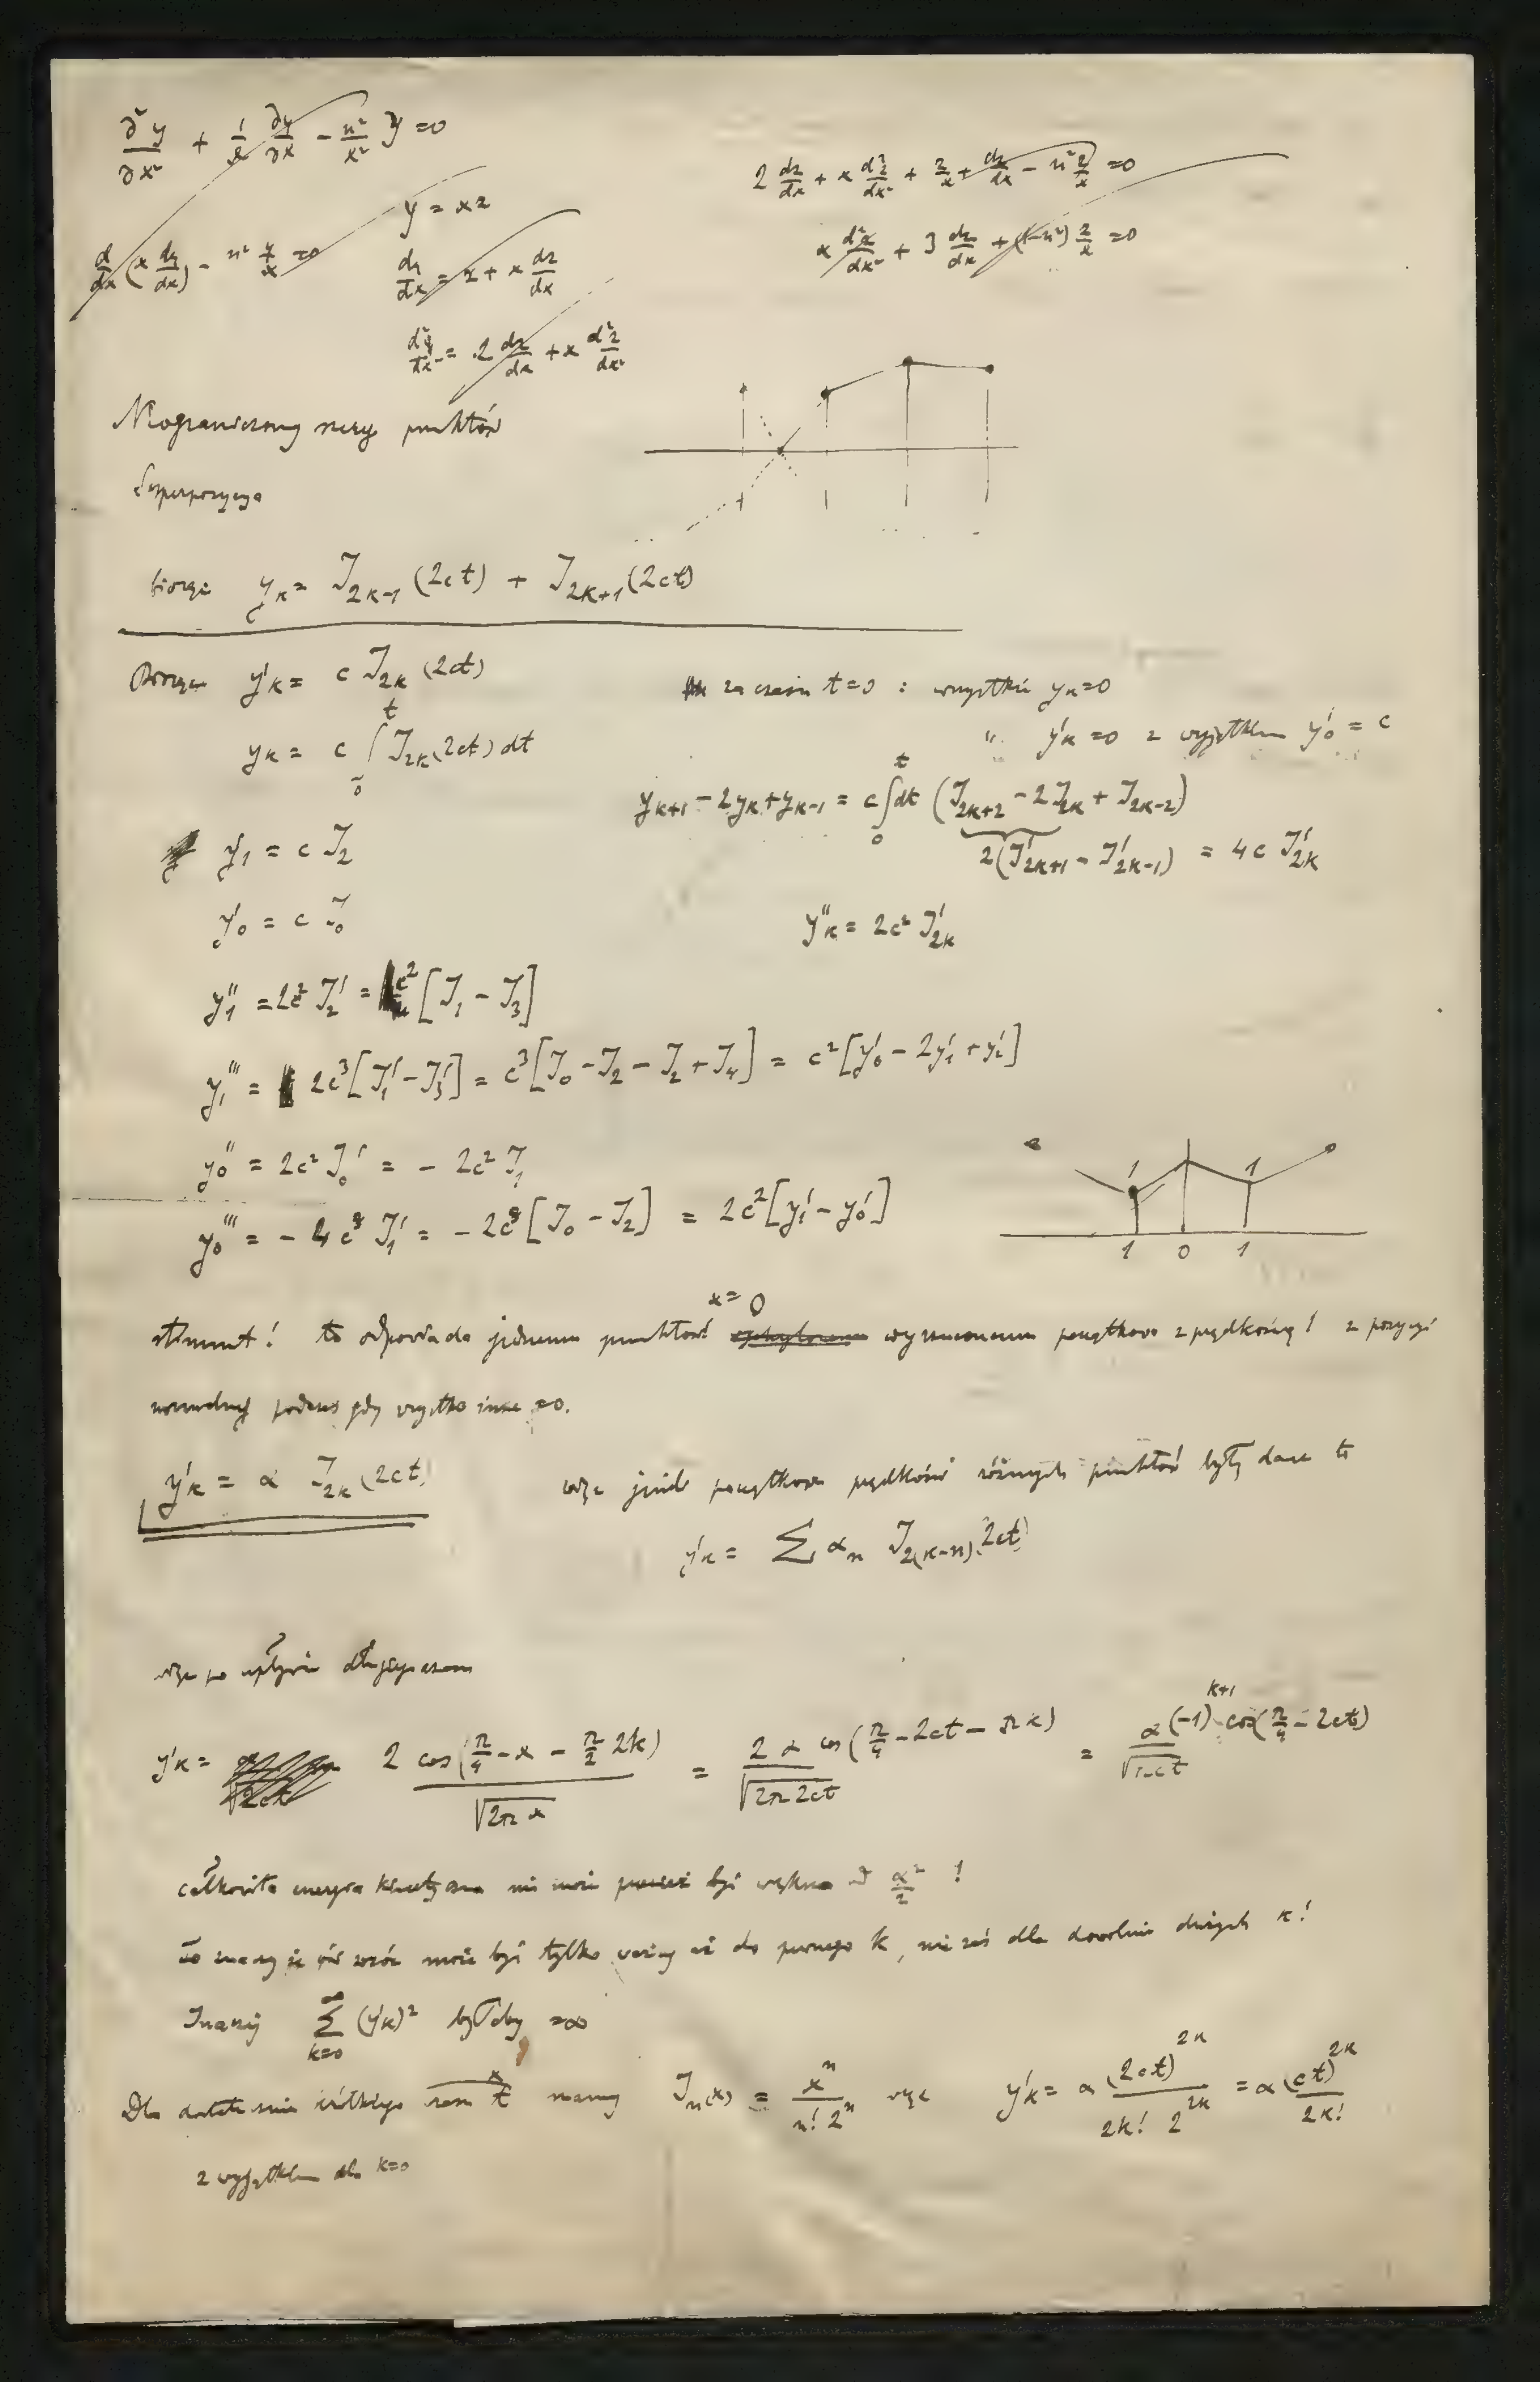 ∂²y/∂x² + 1/x ∂y/∂x − n²/x² y = 0
2 dz/dx + x d²z/dx² + z/x + dz/dx − n² z/x = 0
y = xz
d/dx (x dy/dx) − n² y/x = 0
dy/dx = z + x dz/dx
x d²z/dx² + 3 dz/dx + (1−n²) z/x = 0
d²y/dx² = 2 dz/dx + x d²z/dx²
Nieograniczony szereg punktów
Superpozycya
biorąc yₖ = J₂ₖ₋₁ (2ct) + J₂ₖ₊₁ (2ct)
Biorąc y'ₖ = c J₂ₖ (2ct)
za czasu t=0 : wszystkie yₖ=0
" y'ₖ = 0 z wyjątkiem y'₀ = c
yₖ = c ∫₀ᵗ J₂ₖ(2ct) dt
yₖ₊₁ − 2yₖ + yₖ₋₁ = c ∫₀ᵗ dt (J₂ₖ₊₂ − 2J₂ₖ + J₂ₖ₋₂)
2(J'₂ₖ₊₁ − J'₂ₖ₋₁) = 4c J'₂ₖ
y'₁ = c J₂
y'₀ = c J₀
y''ₖ = 2c² J'₂ₖ
y''₁ = 2c² J₂' = c² [J₁ − J₃]
y₁''' = 2c³ [J₁' − J₃'] = c³ [J₀ − J₂ − J₂ + J₄] = c² [y'₀ − 2y'₁ + y'₂]
y₀'' = 2c² J₀' = − 2c² J₁
y₀''' = − 4c³ J₁' = − 2c³ [J₀ − J₂] = 2c² [y₁' − y₀']
1 1
1 0 1
x = 0
to odpowiada jednemu punktowi wyrzuconemu początkowo z prędkością! z pozycyi
normalnej podczas gdy wszystko inne = 0.
y'ₖ = α J₂ₖ (2ct)
więc jeżeli początkowe prędkości różnych punktów były dane to
y'ₖ = Σ αₙ J₂₍ₖ₋ₙ₎ (2ct)
więc po upływie długiego czasu
y'ₖ = 2 cos(π/4 − x − π/2 2k) / √(2πx) = 2α cos(π/4 − 2ct − πk) / √(2π 2ct) = α (−1)ᵏ⁺¹ cos(π/4 − 2ct) / √(πct)
całkowita energia kinetyczna nie może przecież być większa od α²/2 !
To znaczy że ów wzór może być tylko ważny aż do pewnego k, nie zaś dla dowolnie dużych k!
Inaczej Σₖ₌₀^∞ (y'ₖ)² byłoby = ∞
Dla dostatecznie krótkiego czasu t mamy Jₙ(x) = xⁿ / n! 2ⁿ więc y'ₖ = α (2ct)²ᵏ / 2k! 2²ᵏ = α (ct)²ᵏ / 2k!
z wyjątkiem dla k=0